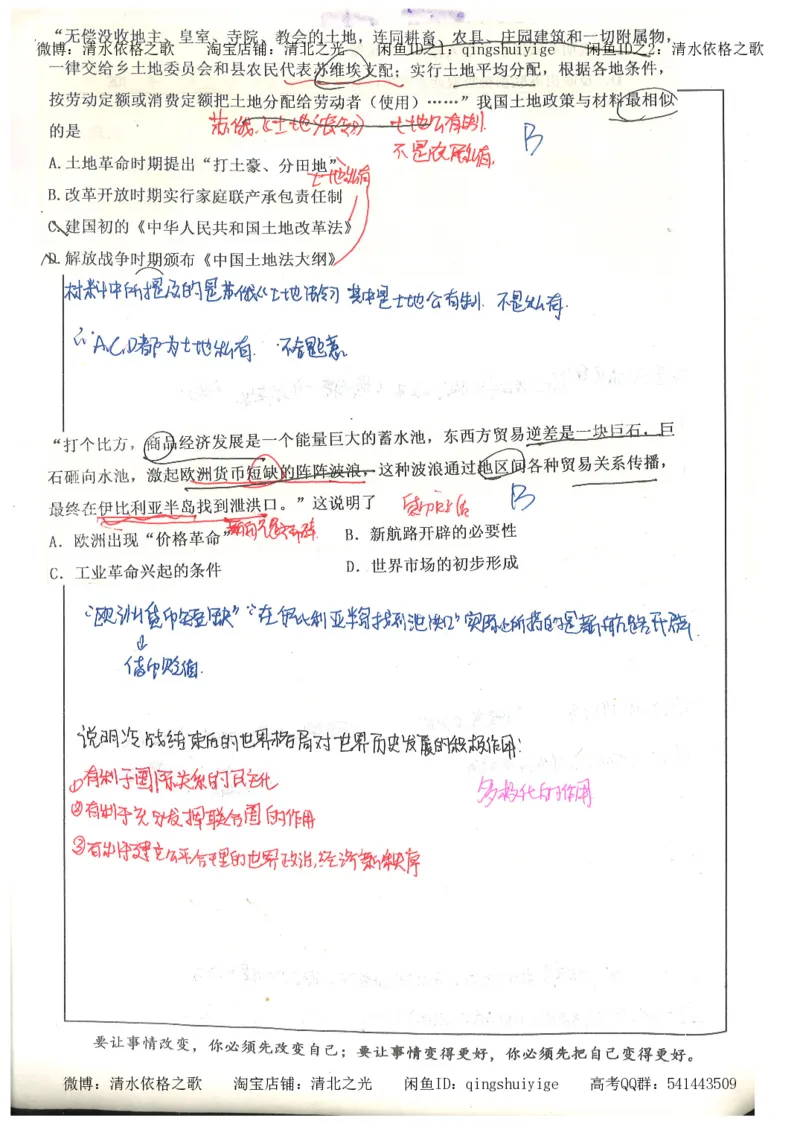 “无偿没收地主、皇室、寺院、教会的土地，连同耕畜、农具、庄园建筑和一切附属物，
微博：清水依格之歌 淘宝店铺：清北之光 闲鱼ID之1：qingshuiyige 闲鱼ID之2：清水依格之歌
一律交给乡土地委员会和县农民代表苏维埃支配；实行土地平均分配，根据各地条件，
按劳动定额或消费定额把土地分配给劳动者（使用）……”我国土地政策与材料最相似
的是
苏俄《土地法令》 土地公有制
不是农民私有.
B
A.土地革命时期提出“打土豪、分田地”
土地私有
B.改革开放时期实行家庭联产承包责任制
C.建国初的《中华人民共和国土地改革法》
D.解放战争时期颁布《中国土地法大纲》
材料中所提及的是苏俄《土地法令》其中是土地公有制. 不是私有.
∴A.C.D都为土地私有. 不合题意.
“打个比方，商品经济发展是一个能量巨大的蓄水池，东西方贸易逆差是一块巨石，巨
石砸向水池，激起欧洲货币短缺的阵阵波浪，这种波浪通过地区间各种贸易关系传播，
最终在伊比利亚半岛找到泄洪口。”这说明了
B
A．欧洲出现“价格革命” B．新航路开辟的必要性
C．工业革命兴起的条件 D．世界市场的初步形成
“欧洲货币短缺”“在伊比利亚半岛找到泄洪口”实际上所指的是新航路开辟.
↓
货币贬值.
说明冷战结束后的世界格局对世界历史发展的积极作用：
①有利于国际关系的民主化
多极化的作用
②有利于充分发挥联合国的作用
③有利于建立公平合理的世界政治,经济新秩序
要让事情改变，你必须先改变自己；要让事情变得更好，你必须先把自己变得更好。
微博：清水依格之歌 淘宝店铺：清北之光 闲鱼ID：qingshuiyige 高考QQ群：541443509